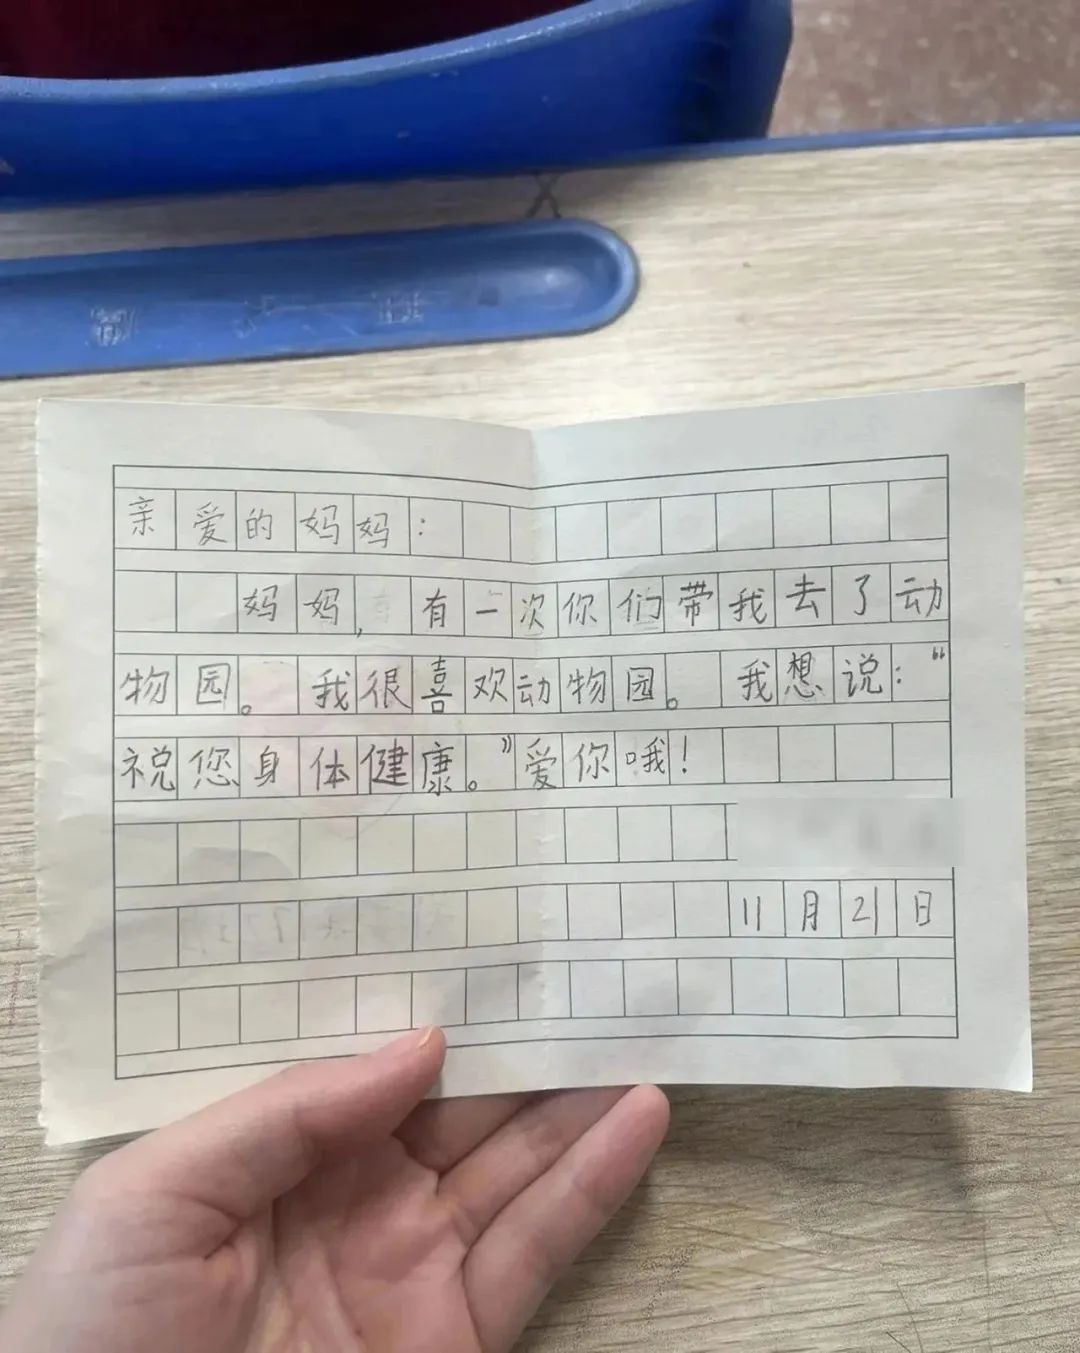 亲爱的妈妈：
妈妈，有一次你们带我去了动
物园。我很喜欢动物园。我想说：“
祝您身体健康。”爱你哦！
11月21日